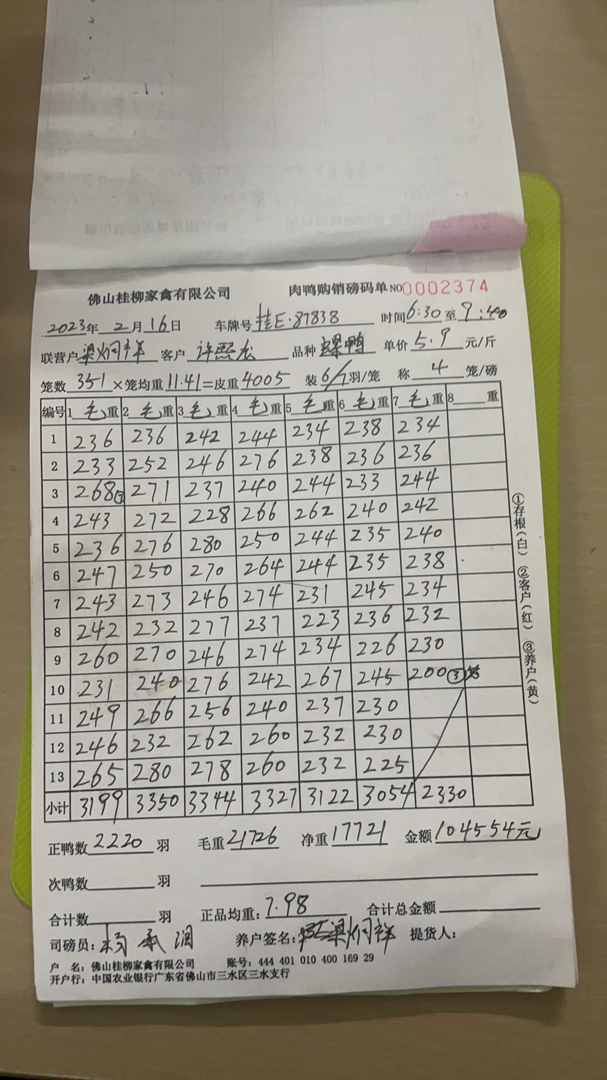 佛山桂柳家禽有限公司 肉鸭购销磅码单 NO 0002374
2023年 2月 16日 车牌号 桂E·87838 时间 6:30 至 9:40
联营户 梁炯祥 客户 许熙龙 品种 螺鸭 单价 5.9 元/斤
笼数 351 ×笼均重 11.41 =皮重 4005 装 6/7 羽/笼 称 4 笼/磅
编号 1 毛重 2 毛重 3 毛重 4 毛重 5 毛重 6 毛重 7 毛重 8 重
1 236 236 242 244 234 238 234
2 233 252 246 276 238 236 236
3 268 271 237 240 244 233 244
4 243 272 228 266 262 240 242
5 236 276 280 250 244 235 240
6 247 250 270 264 244 235 238
7 243 273 246 274 231 245 234
8 242 232 277 237 223 236 232
9 260 270 246 274 234 226 230
10 231 240 276 242 267 245 200 ③笼
11 249 266 256 240 237 230
12 246 232 262 260 232 230
13 265 280 278 260 232 225
小计 3199 3350 3344 3327 3122 3054 2330
正鸭数 2220 羽 毛重 21726 净重 17721 金额 104554元
次鸭数 羽
合计数 羽 正品均重: 7.98 合计总金额
司磅员: 杨 养户签名: 梁炯祥 提货人:
户 名: 佛山桂柳家禽有限公司 账号: 444 401 010 400 169 29
开户行: 中国农业银行广东省佛山市三水区三水支行
①存根(白) ②客户(红) ③养户(黄)